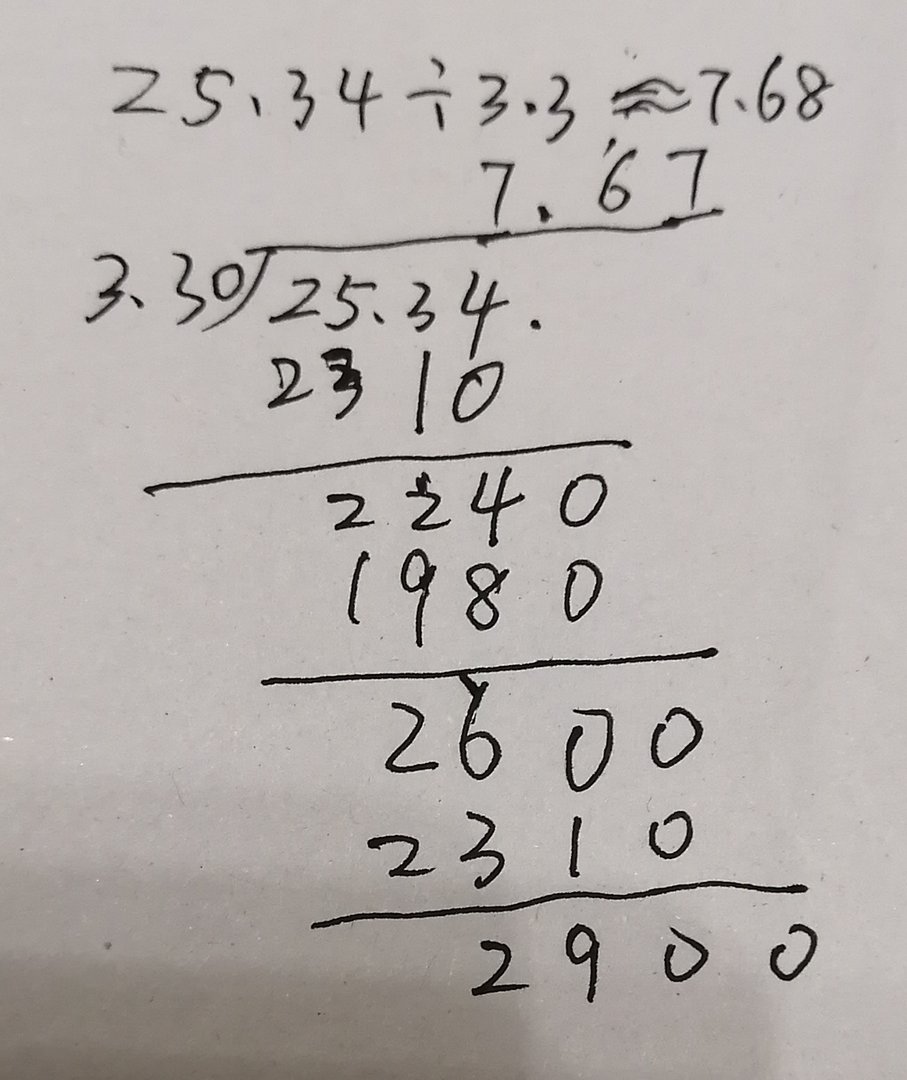 25.34÷3.3≈7.68
7.67
3.30)25.34.
2310
2240
1980
2600
2310
2900